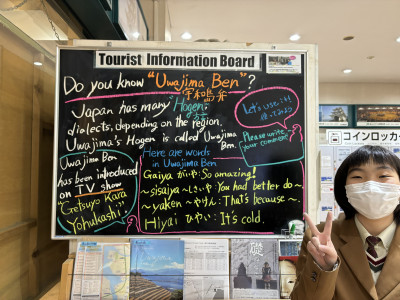 Tourist Information Board
Do you know "Uwajima Ben"?
宇和島弁
Japan has many "Hogen"
dialects, depending on the region.
Uwajima's Hogen is called Uwajima
Ben.
Let's use it!
使ってみよう
Please write
your comment
Uwajima Ben
has been introduced
on TV show
"Getsuyo Kara
Yofukashi"
Here are words
in Uwajima Ben
Gaiya がいや: So amazing!
~sisaiya ~しさいや: You had better do~.
~yaken ~やけん: That's because~.
Hiyai ひやい: It's cold.
コインロッカー